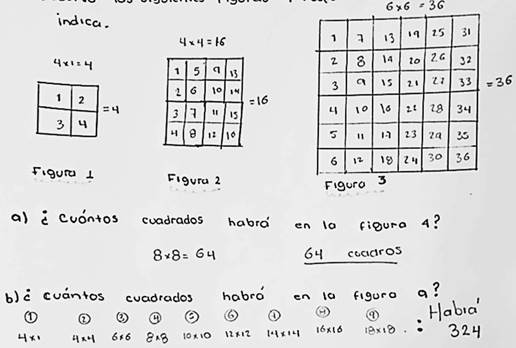 indica.
6x6 = 36
4x4=16
4x1=4
1 2
3 4
=4
1 5 9 13
2 6 10 14
3 7 11 15
4 8 12 16
=16
1 7 13 19 25 31
2 8 14 20 26 32
3 9 15 21 27 33
4 10 16 22 28 34
5 11 17 23 29 35
6 12 18 24 30 36
=36
Figura 1
Figura 2
Figura 3
a) ¿ Cuántos cuadrados habrá en la figura 4?
8x8= 64
64 cuadros
b) ¿ cuántos cuadrados habrá en la figura 9?
① ② ③ ④ ⑤ ⑥ ⑨
4x1 4x4 6x6 8x8 10x10 12x12 14x14 16x16 18x18 . : Habiá
324